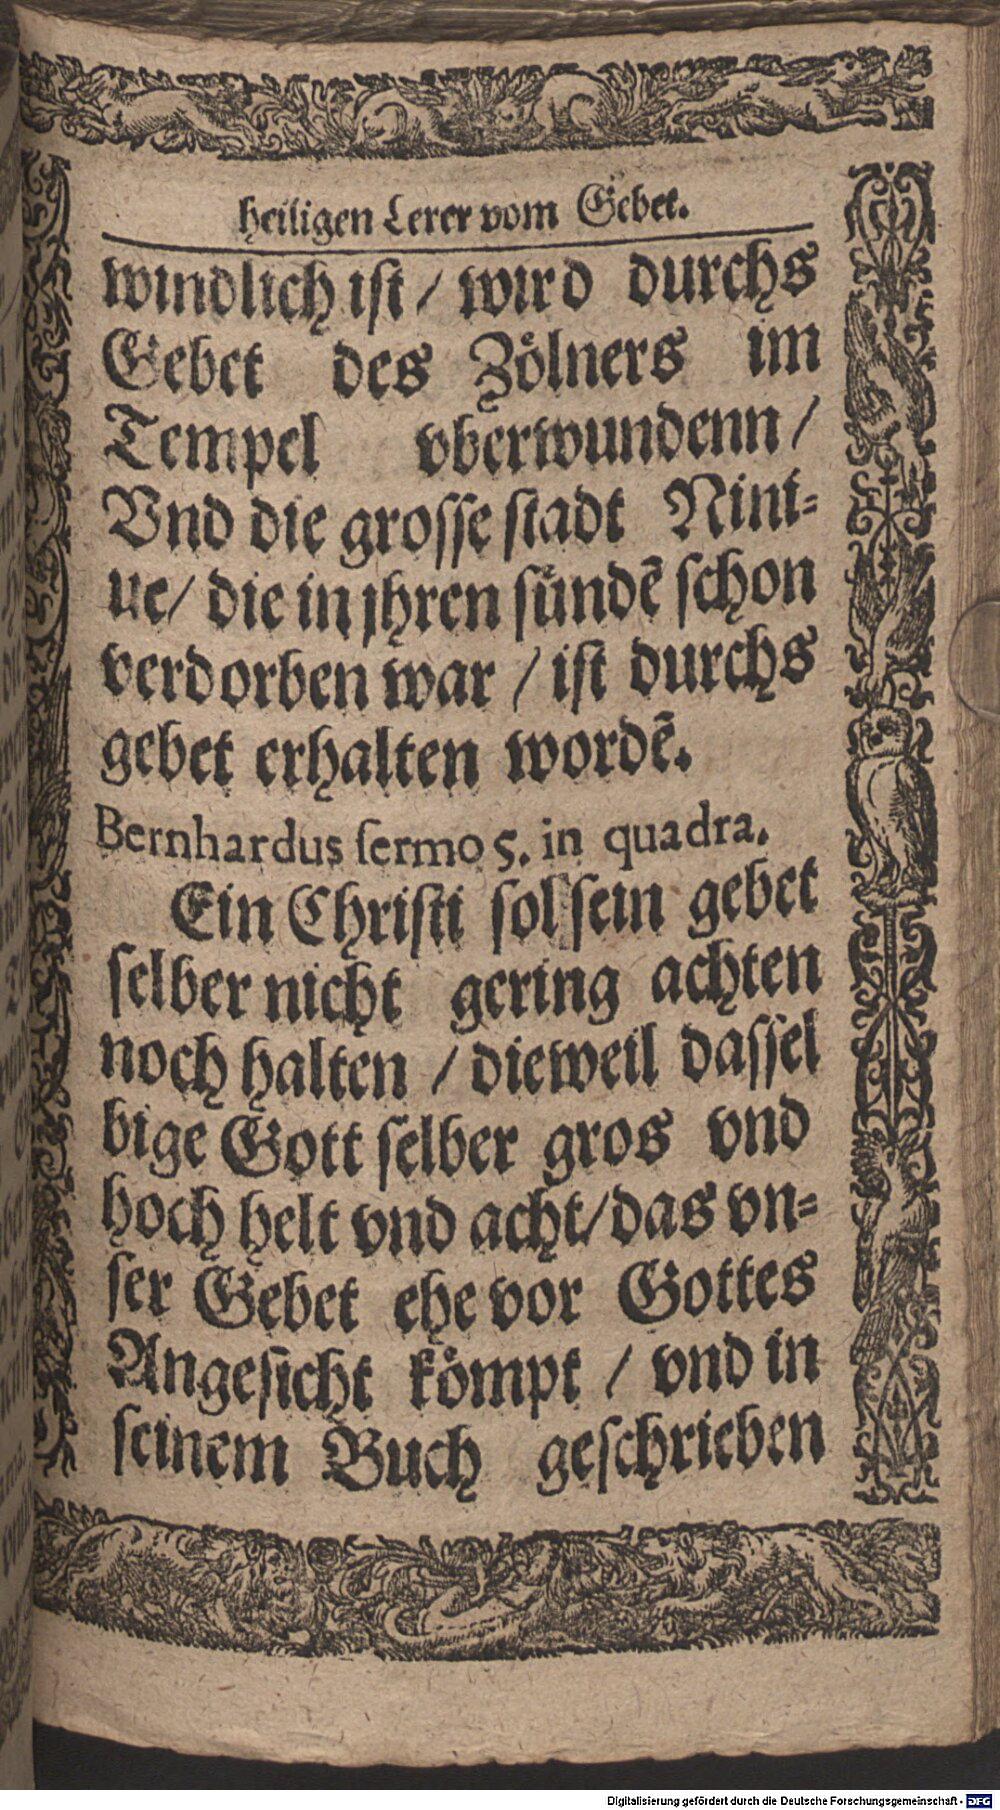 heiligen Lerer vom Gebet.
windlich ist / wird durchs
Gebet des Zölners im
Tempel vberwundenn /
Vnd die grosse stadt Nini=
ue/ die in jhren sündē schon
verdorben war / ist durchs
gebet erhalten wordē.
Bernhardus sermo 5. in quadra.
Ein Christi sol sein gebet
selber nicht gering achten
noch halten / dieweil dassel
bige Gott selber gros vnd
hoch helt vnd acht/das vn=
ser Gebet ehe vor Gottes
Angesicht kömpt / vnd in
seinem Buch geschrieben
Digitalisierung gefördert durch die Deutsche Forschungsgemeinschaft - DFG